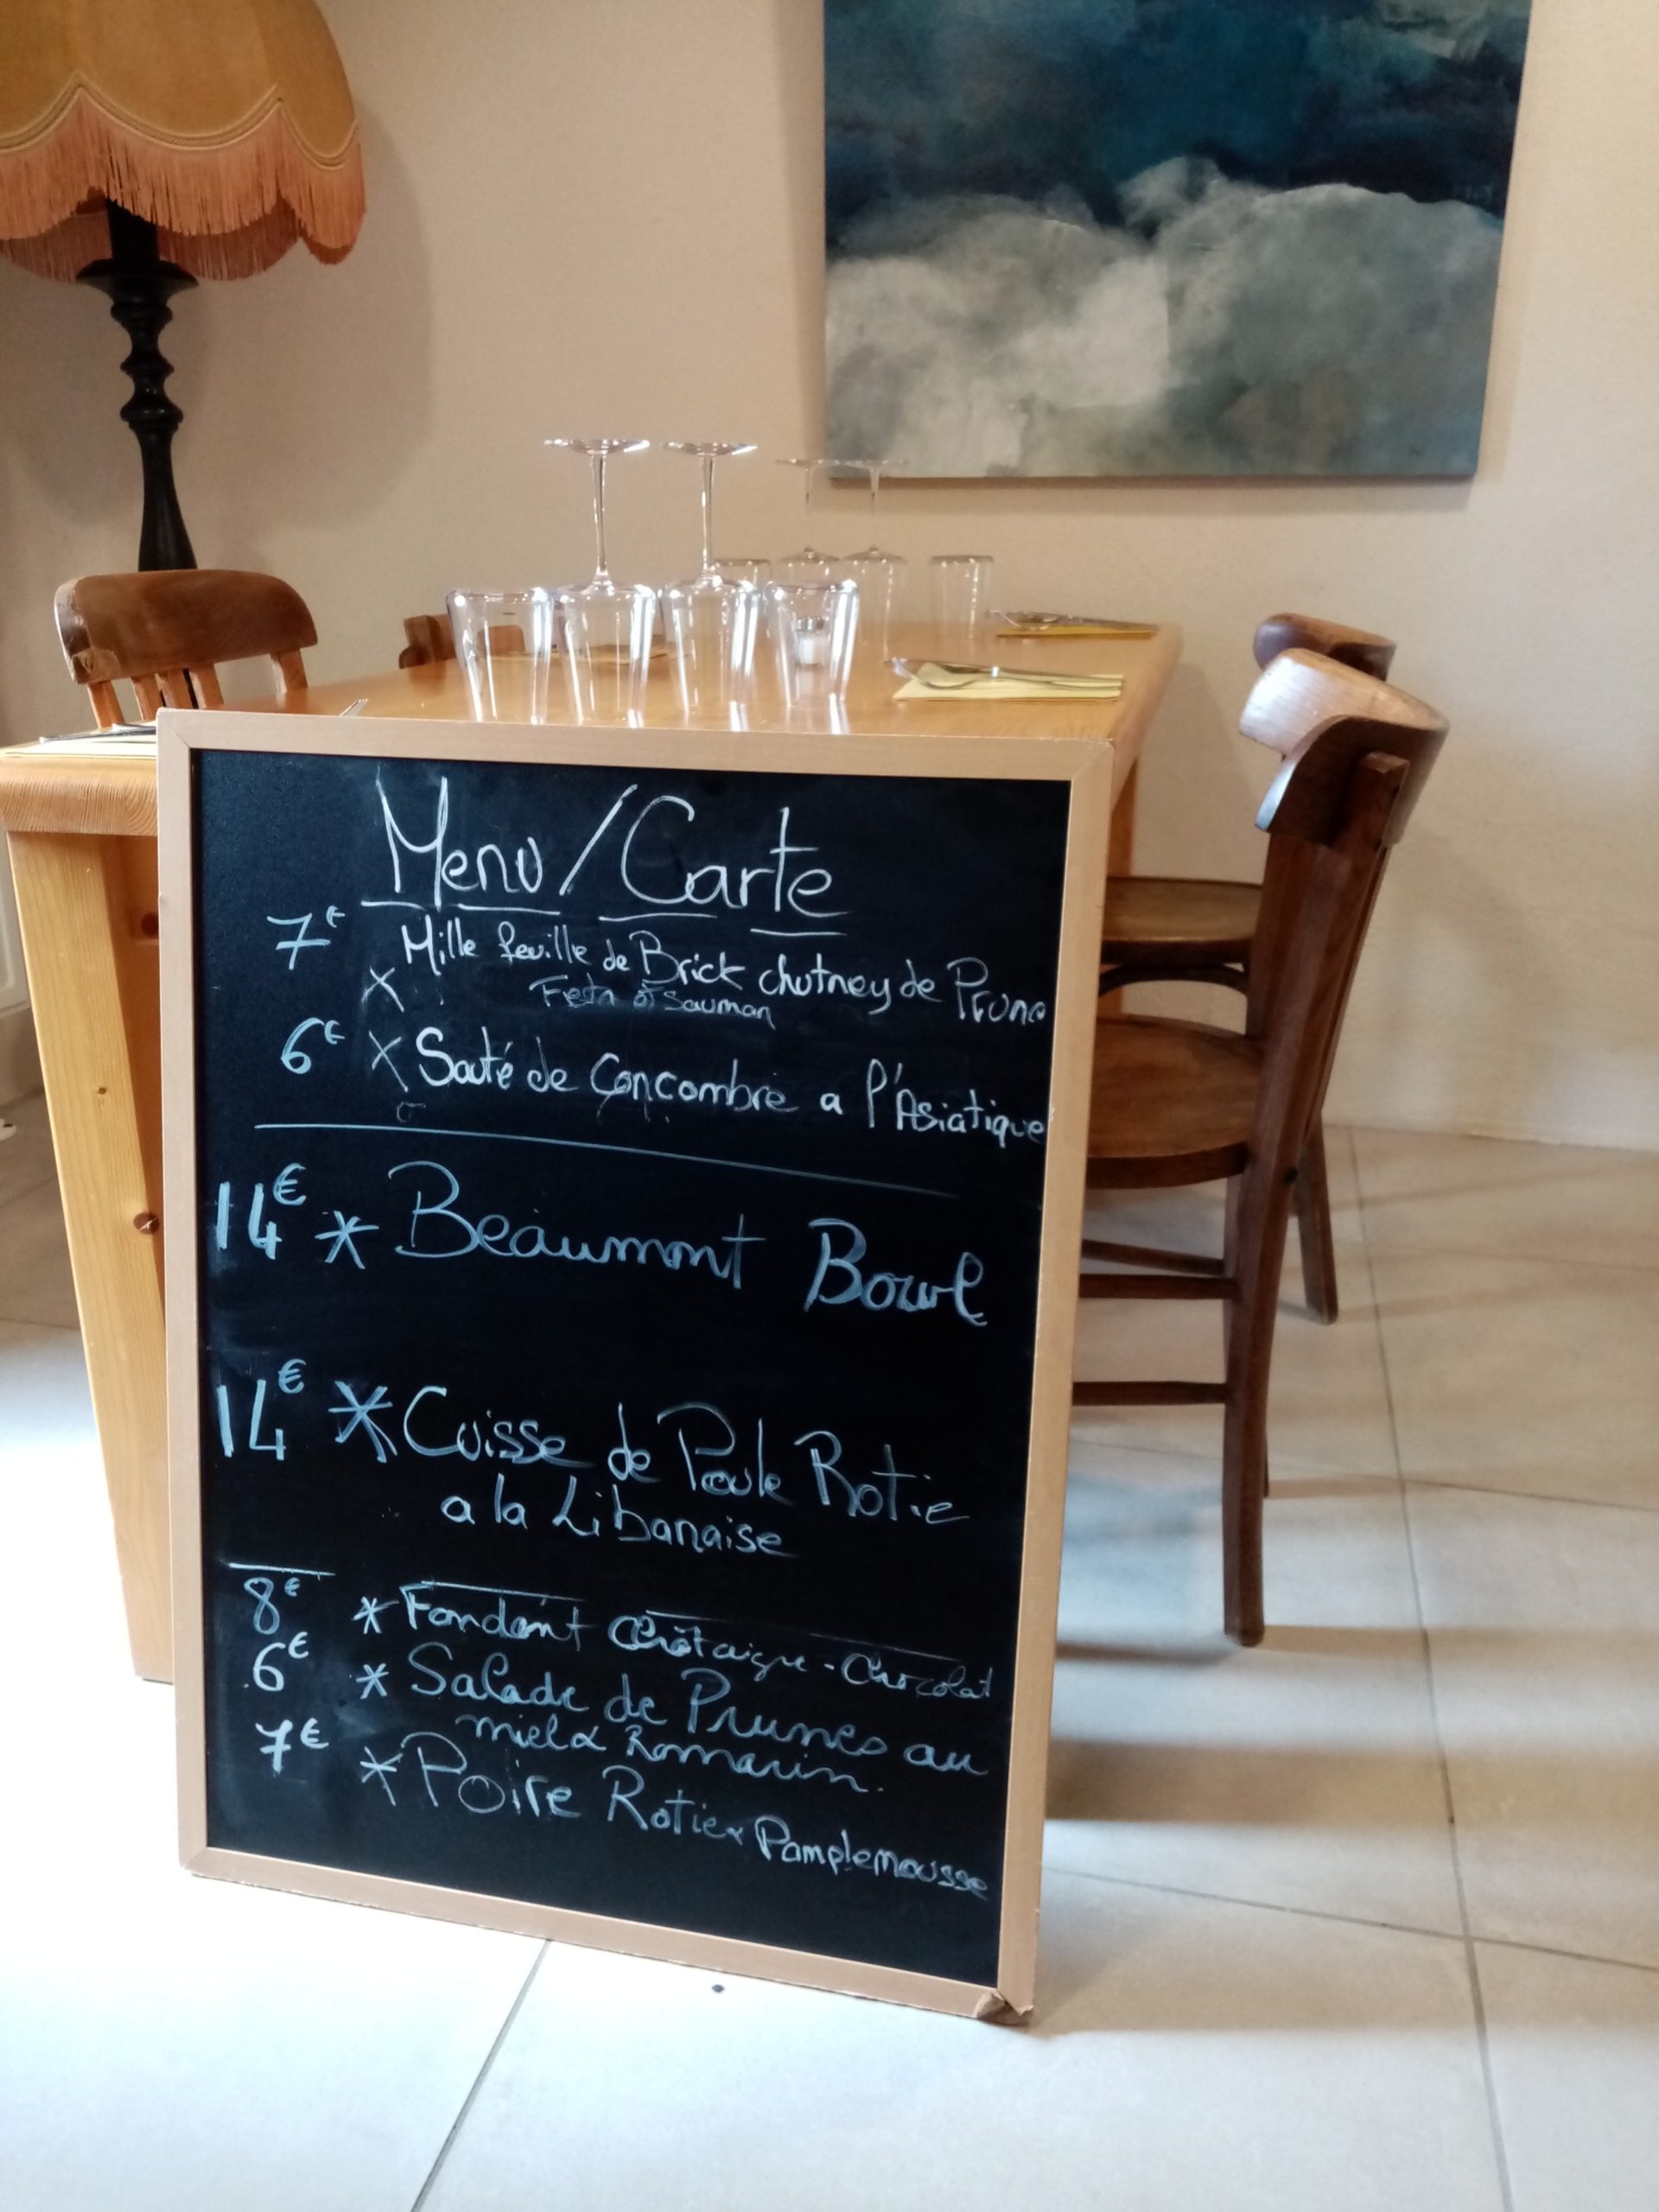 Menu/Carte
7€ x Mille feuille de Brick chutney de Prune
Feta et saumon
6€ x Sauté de Concombre a l'Asiatique
14€ * Beaumont Bowl
14€ * Cuisse de Poule Rotie
a la Libanaise
8€ * Fondant Chôtaigne-Chocolat
6€ * Salade de Prunes au
miel & Romarin.
7€ * Poire Rotie x Pamplemousse